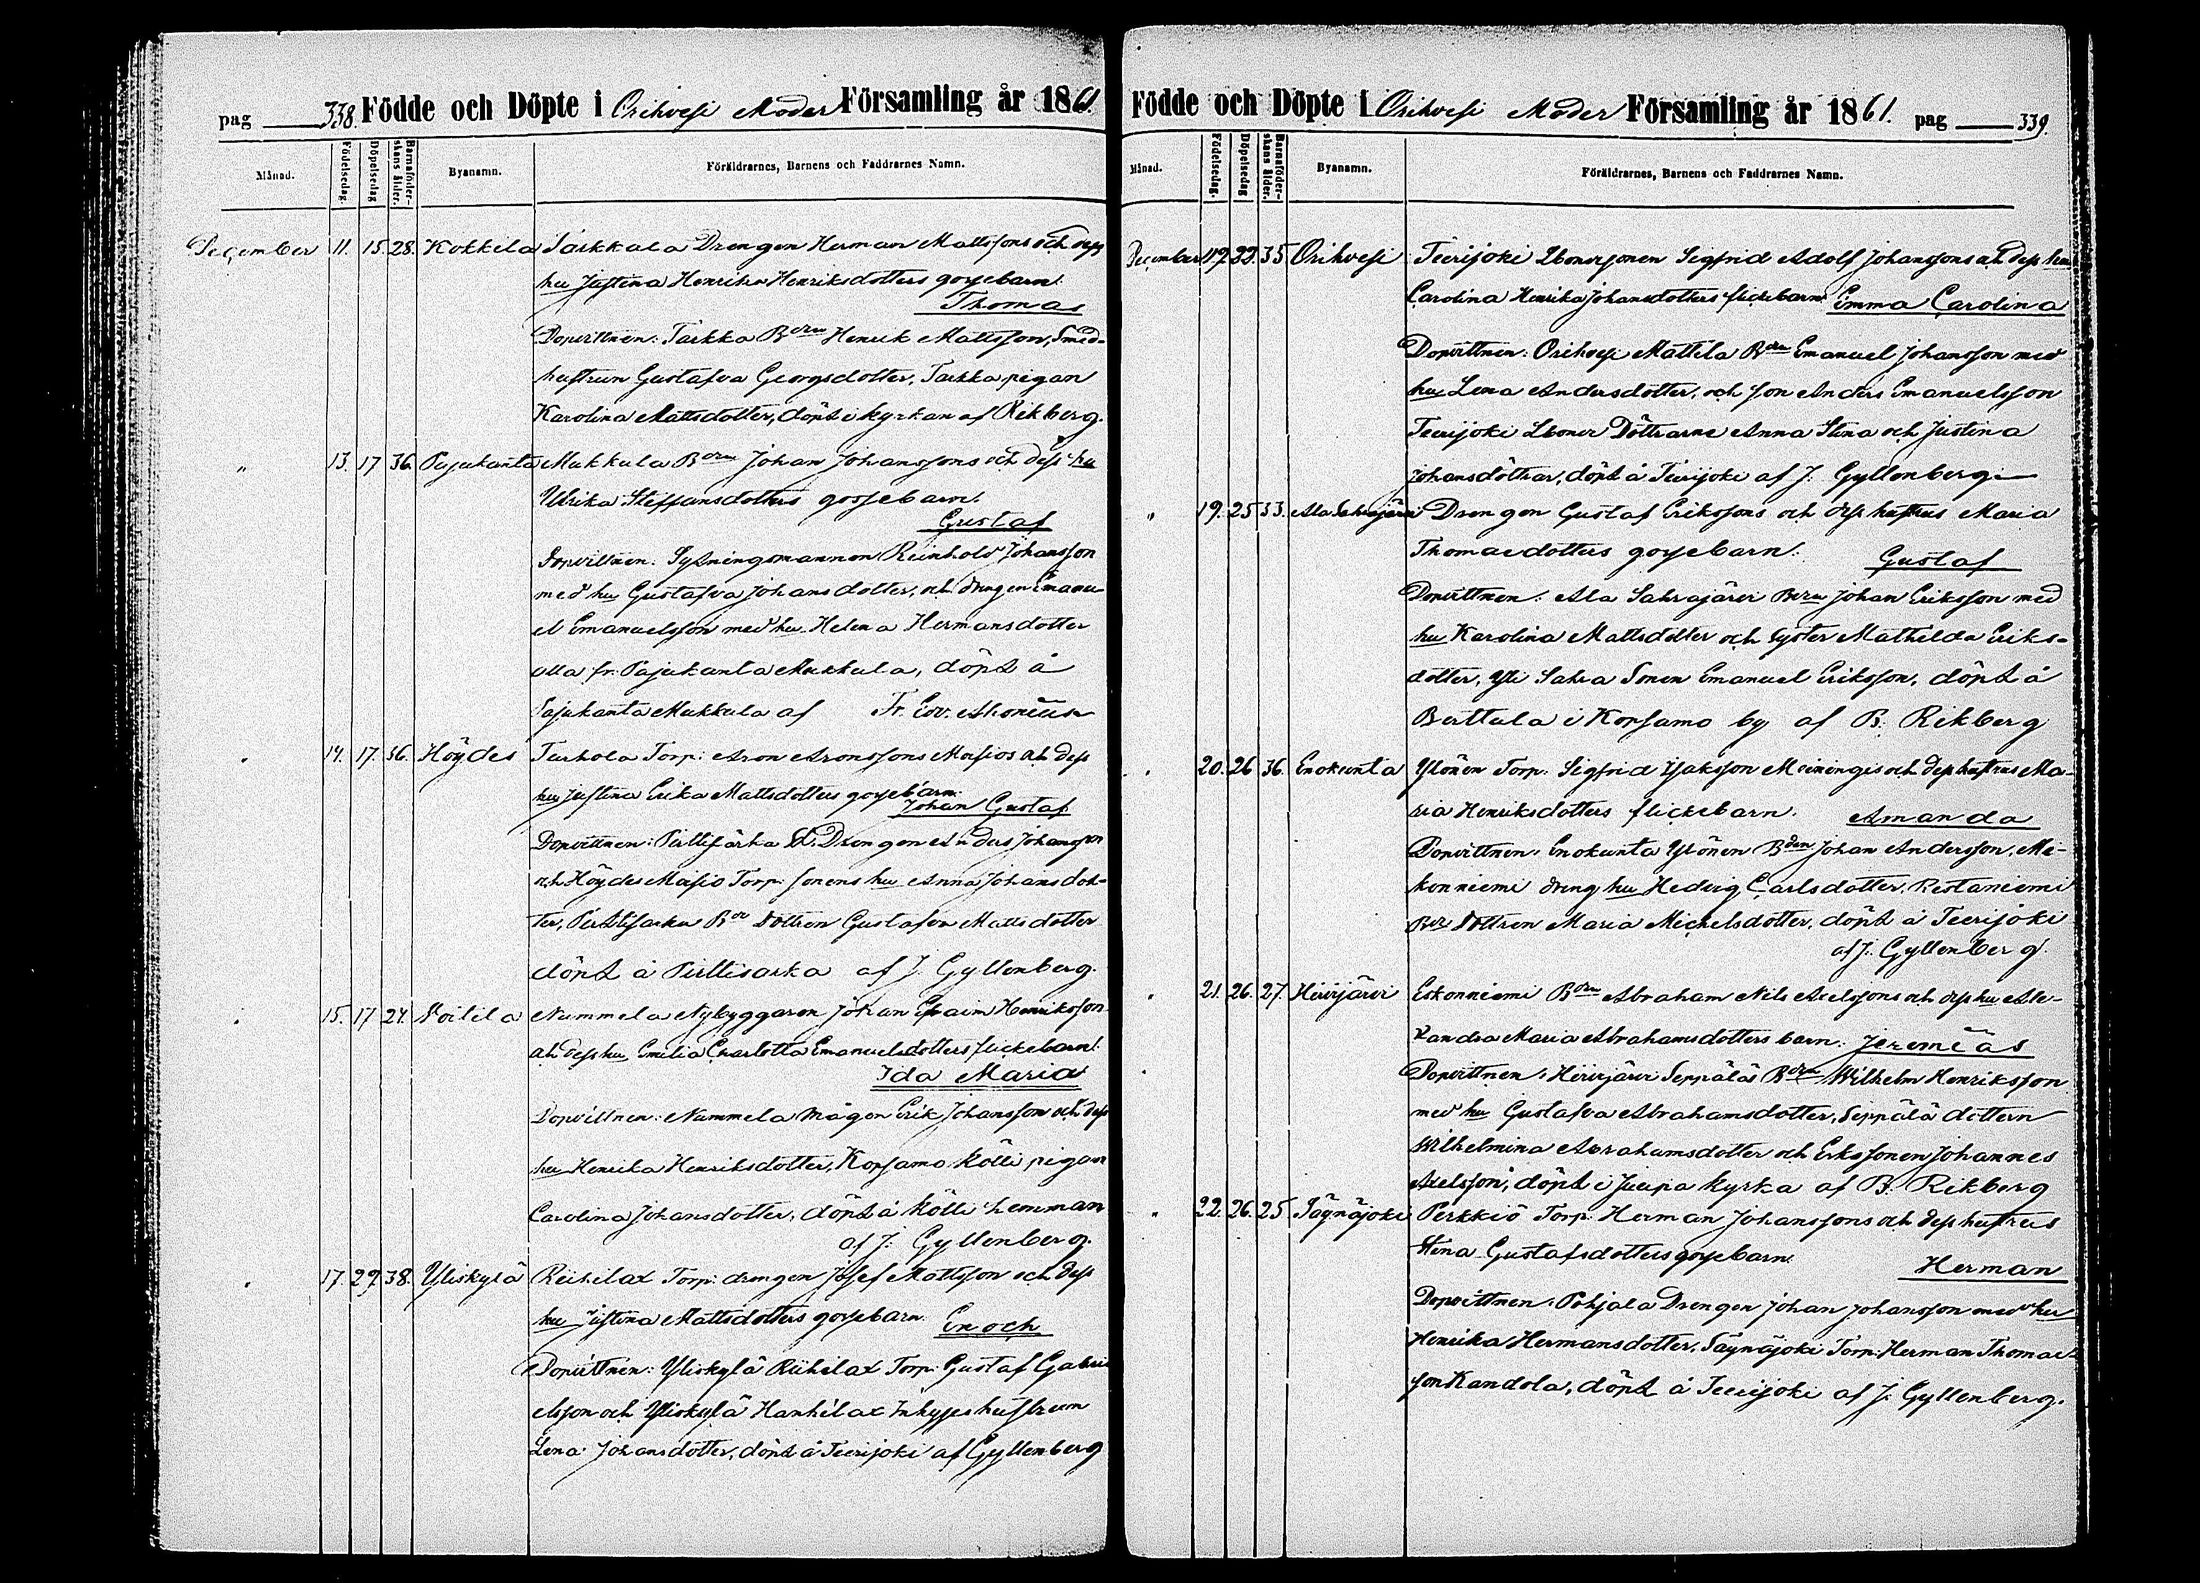 pag 338. Födde och Döpte i Orihvesi Moder Församling år 1861.
Månad. Födelsedag. Döpelsedag Barnaföderskans ålder. Byanamn. Föräldrarnes, Barnens och Faddrarnes Namn.
December 11. 15. 28. Kokkila Tarkkala Drengen Herman Mattssons och dess
hu Justina Henrika Henriksdotters gossebarn:
Thomas
Dopvittnen: Tarkka Bdern Henrik Mattsson, Smed-
hustrun Gustafva Georgsdotter, Tarkka pigan
Karolina Mattsdotter, döpt i kyrkan af Rikberg.
" 13. 17 36. Pajukanta Mukkula Bdern Johan Johanssons och dess hu
Ulrika Steffansdotters gossebarn:
Gustaf
Dopvittnen: Sytningsmannen Reinhold Johansson
med hu Gustafva Johansdotter, och drengen Emanu-
el Emanuelsson med hu Helena Hermansdotter
alla fr: Pajukanta Mukkula, döpt å
Pajukanta Mukkula af Fr. Edv. Ahonius
" 14. 17. 36. Höydes Turhola Torp: Aron Aronssons Moisios och dess
hu Justina Erika Mattsdotters gossebarn:
Johan Gustaf
Dopvittnen: Pirttisarka Drengen Anders Johansson
och Höydes Moisio Torp: sonens hu Anna Johansdot-
ter, Pirttisarka Bde Dottren Gustafva Mattsdotter
döpt å Pirttisarka af J. Gyllenberg.
" 15. 17 24. Voitila Nummela Nybyggaren Johan Efraim Henriksson
och dess hu Emilia Charlotta Emanuelsdotters flickebarn:
Ida Maria
Dopvittnen: Nummela mågen Erik Johansson och dess
hu Henrika Henriksdotter, Kopsamo Kölli pigan
Carolina Johansdotter, döpt å Kölli hemman
af J. Gyllenberg.
" 17. 29. 38. Yliskylä Riihilax Torp: drengen Josef Mattsson och dess
hu Justina Mattsdotters gossebarn: Enoch
Dopvittnen: Yliskylä Riihilax Torp: Gustaf Gabri
elsson och Yliskylä Hanhilax Inhyses hustrun
Lena Johansdotter, döpt å Teerijoki af Gyllenberg
Födde och Döpte i Orihvesi Moder Församling år 1861. pag 339.
Månad. Födelsedag. Döpelsedag Barnaföderskans ålder. Byanamn. Föräldrarnes, Barnens och Faddrarnes Namn.
December 19. 22. 35 Orihvesi Teerijoki Sigfrid Adolf Johanssons och dess hu
Carolina Henrika Johansdotters flickebarn: Emma Carolina
Dopvittnen: Orihvesi Mattila Bden Emanuel Johansson med
hu Lena Andersdotter, och son Anders Emanuelsson
Teerijoki Döttrarne Anna Stina och Justina
Johansdöttrar, döpt å Teerijoki af J. Gyllenberg
" 19. 25 33. Ala Sahrajärvi Drengen Gustaf Erikssons och dess hustrus Maria
Thomasdotters gossebarn: Gustaf
Dopvittnen: Ala Sahrajärvi Bdern Johan Eriksson med
hu Karolina Mattsdotter och Syster Mathilda Eriks-
dotter, Yli Sahra Sonen Emanuel Eriksson, döpt å
Berttula i Kopsamo by af B. Rikberg
" 20. 26 36. Enokunta Ylönen Torp: Sigfrid Isaksson Meiningis och dess hustrus Ma-
ria Henriksdotters flickebarn: Amanda
Dopvittnen: Enokunta Ylönen Bden Johan Andersson, Me-
konniemi dreng hu Hedvig Carlsdotter, Pestaniemi
Bde Dottren Maria Michelsdotter, döpt å Teerijoki
af J. Gyllenberg.
" 21. 26. 27. Hirvijärvi Eskonniemi Bden Abraham Nils Axelssons och dess hu Alex-
xandra Maria Abrahamsdotters barn: Jeremias
Dopvittnen: Hirvijärvi Seppäläs Bden Wilhelm Henriksson
med hu Gustafva Abrahamsdotter, Seppälä dottern
Wilhelmina Abrahamsdotter och Eskssonen Johannes
Axelsson, döpt i Juupa kyrka af B. Rikberg
" 22. 26. 25. Säynäjoki Perkkiö Torp: Herman Johanssons och dess hustrus
Stina Gustafsdotters gossebarn: Herman
Dopvittnen: Pohjala Drengen Johan Johansson med hu
Henrika Hermansdotter, Säynäjoki Torp: Herman Thomas-
son Kandola, döpt å Teerijoki af J. Gyllenberg.